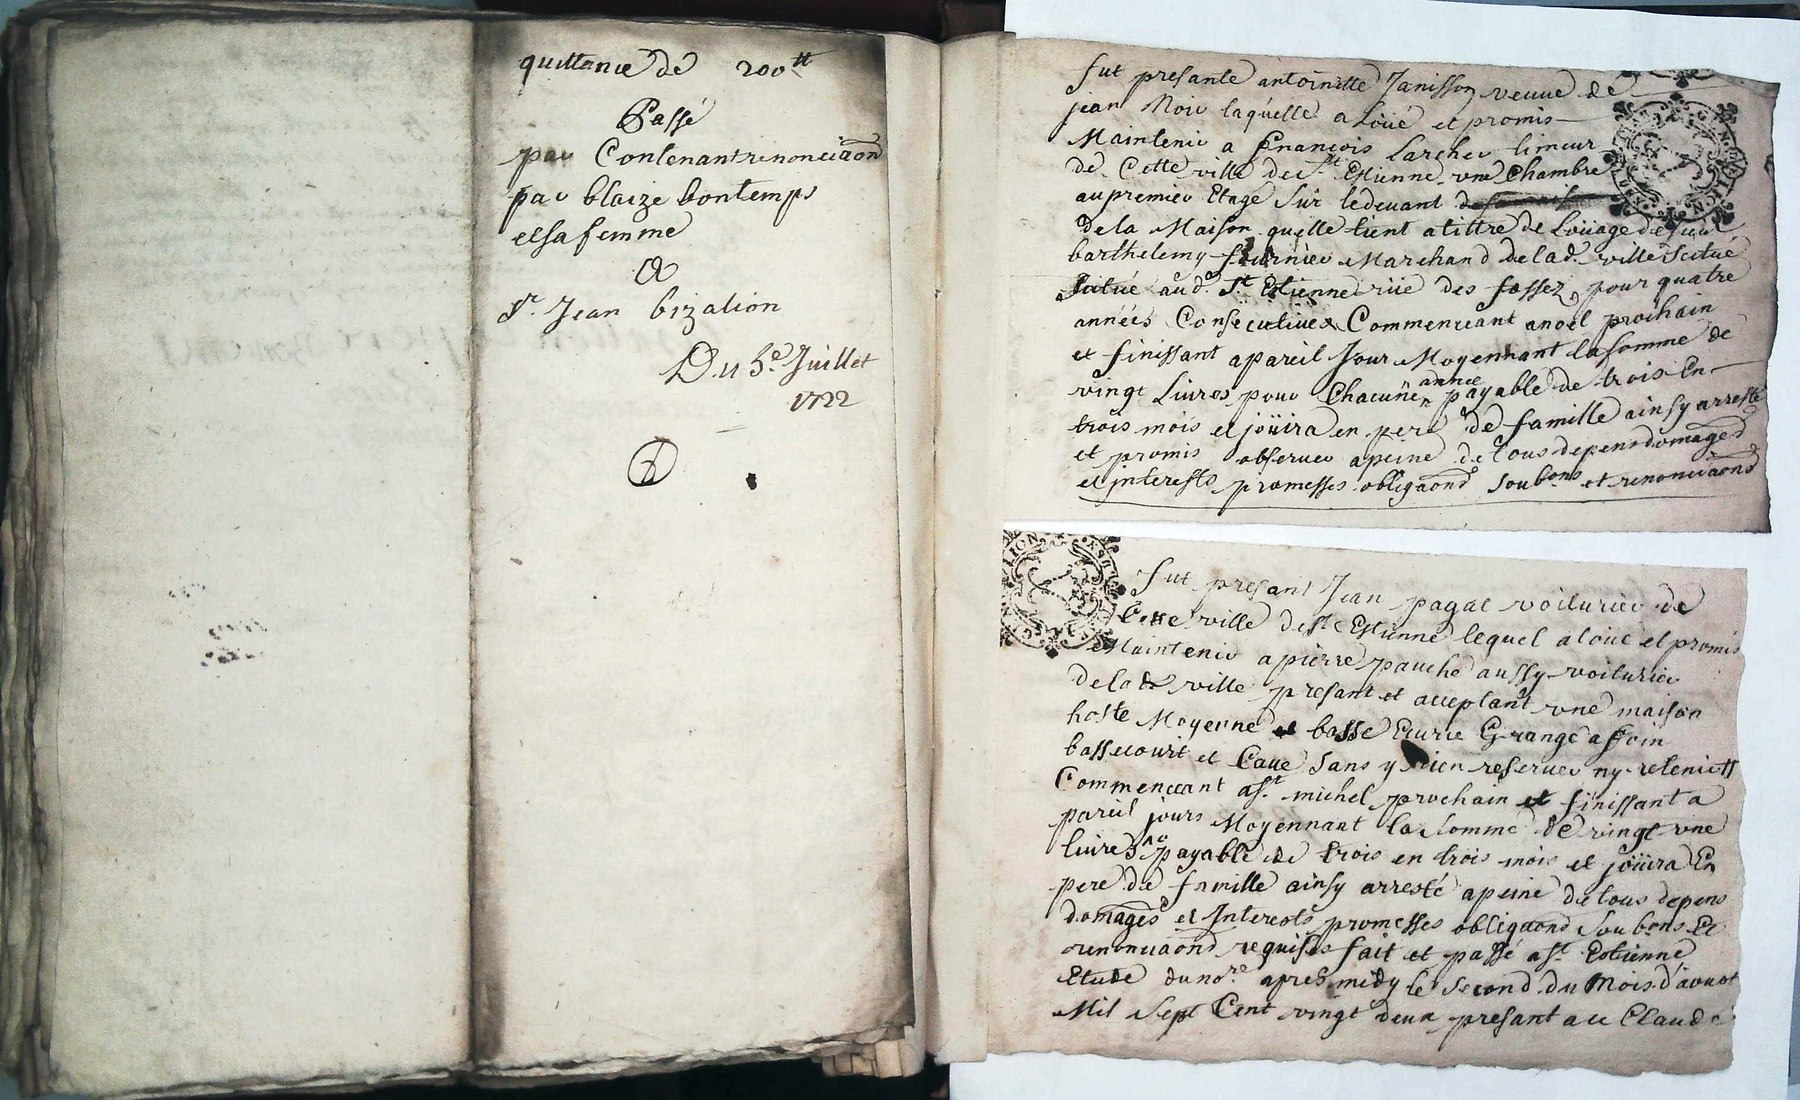 quittance de 200#
Passé
par Contenant renonciaôn
par blaize bontemps
et sa femme
A
Sr. Jean bizalion
Du 5e. Juillet
1722
fut presante antoinette Janisson veuve de
jean Noir laquelle a Loüé et promis
Maintenir a François Larcher limeur
de Cette ville de St. Estienne vne Chambre
au premier Etage Sur le devant
de la Maison quelle tient a tittre de Loüage de sieur
barthelemy fournier Marchand de lad. ville Scitué
Scitué aud. St. Estienne rüe des fossez pour quatre
années Consecutives Commencant a noel prochain
et finissant a pareil Jour Moyennant la somme de
vingt Livres pour Chacune année payable de trois En
trois mois et joüira en pere de famille ainsy arresté
et promis observer a peine de tous depens domages
et interests promesses obligaôns soubons et renonciaôns
fut presant Jean pagat voiturier de
Cette ville de St Estienne lequel a loüé et promis
Maintenir a pierre pauche aussy voiturier
de lad ville presant et acceptant vne maison
haste Moyenne et basse Ecurie Grange a foin
bassecourt et Cave Sans y rien reserver ny retenir
Commencant a St. michel prochain et finissant a
pareil jours Moyennant la somme de vingt vne
livres payable de trois en trois mois et joüira En
pere de famille ainsy arresté a peine de tous depens
domages et Interests promesses obligaôns soubons Et
renonciaôns requises fait et passé a St. Estienne
Etude du nore. apres midy le second du Mois d'avoust
Mil Sept Cent vingt deux presant a ce Claude